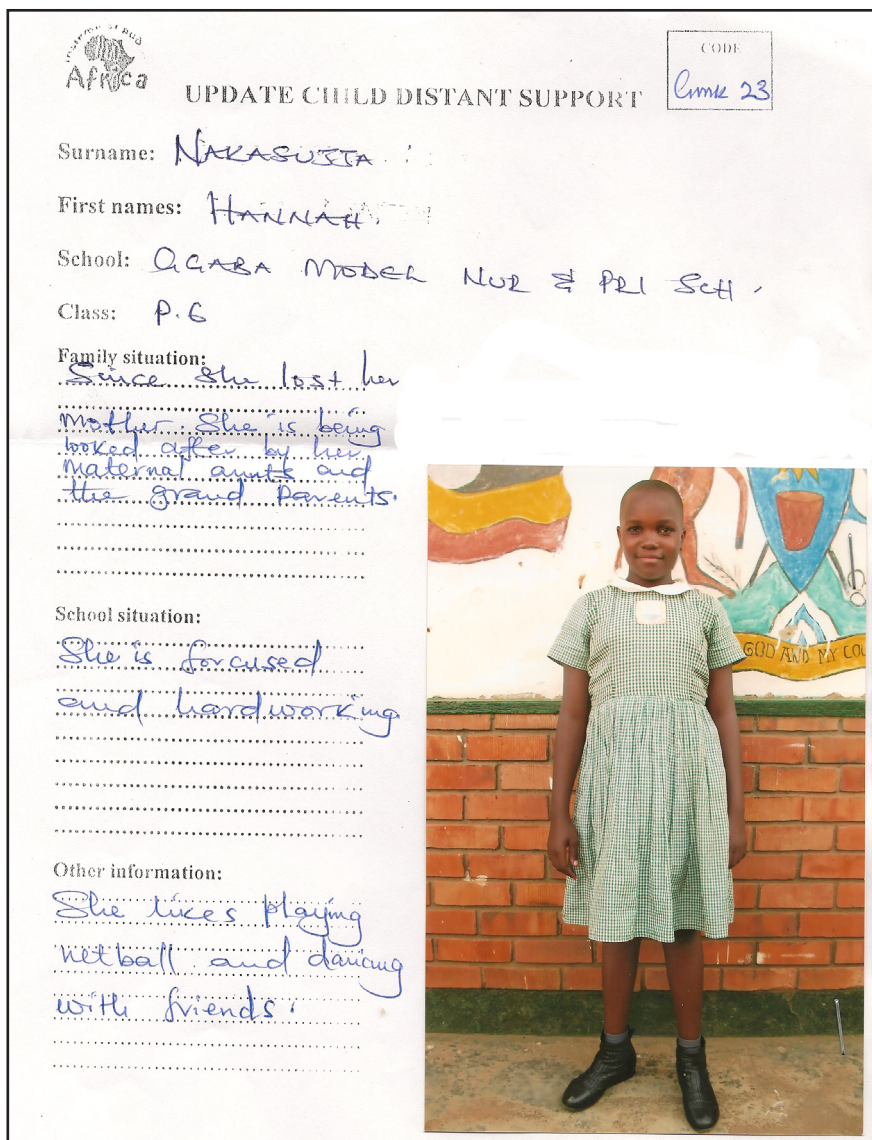 Insieme si può
Africa
CODE
Cmmk 23
UPDATE CHILD DISTANT SUPPORT
Surname: NAKASUJJA
First names: HANNAH.
School: GGABA MODEL NUR & PRI SCH.
Class: P.6
Family situation:
Since she lost her
mother. She is being
looked after by her
maternal aunts and
the grand parents.
School situation:
She is forcused
and hardworking.
Other information:
She likes playing
netball and dancing
with friends.
GOD AND MY COU